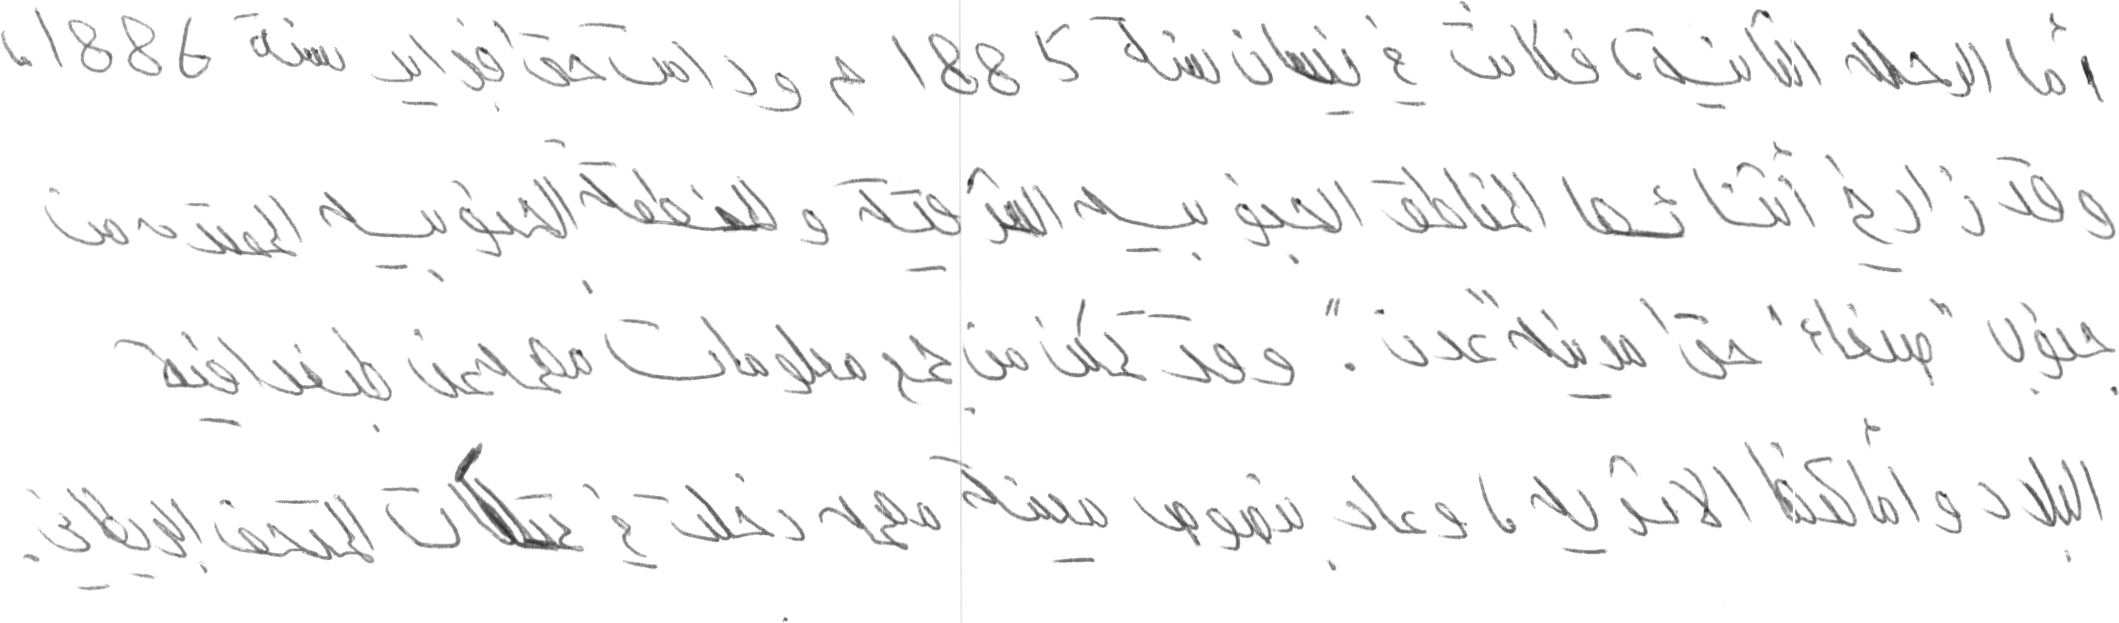 أما الرحلة الثانية، فكانت في نيسان سنة 1885 م ودامت حتى فبراير سنة 1886،
وقد زار في أثنائها المناطق الجنوبيه الشرقية والمنطقة الجنوبيه الممتده من
جنوب "صنعاء" حتى مدينة "عدن". وقد تمكن من جمع معلومات مهمه عن جغرافية
البلاد وأماكنها الاثريه، وعاد بنصوص مهمه دخلت في ممتلكات المتحف البريطاني.